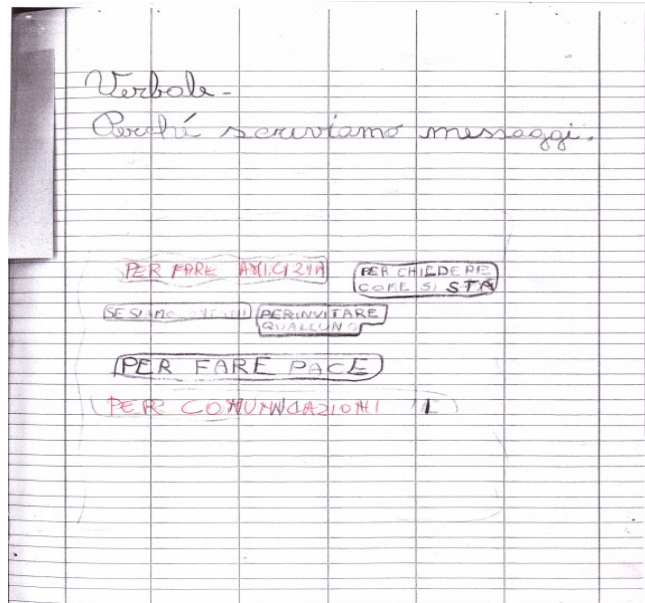 Verbale-
Perché scriviamo messaggi.
PER FARE AMICIZIA
PER CHIEDERE
COME SI STA
SE SIAMO
PERINVITARE
QUALCUNO
PER FARE PACE
PER COMUNICAZIONI